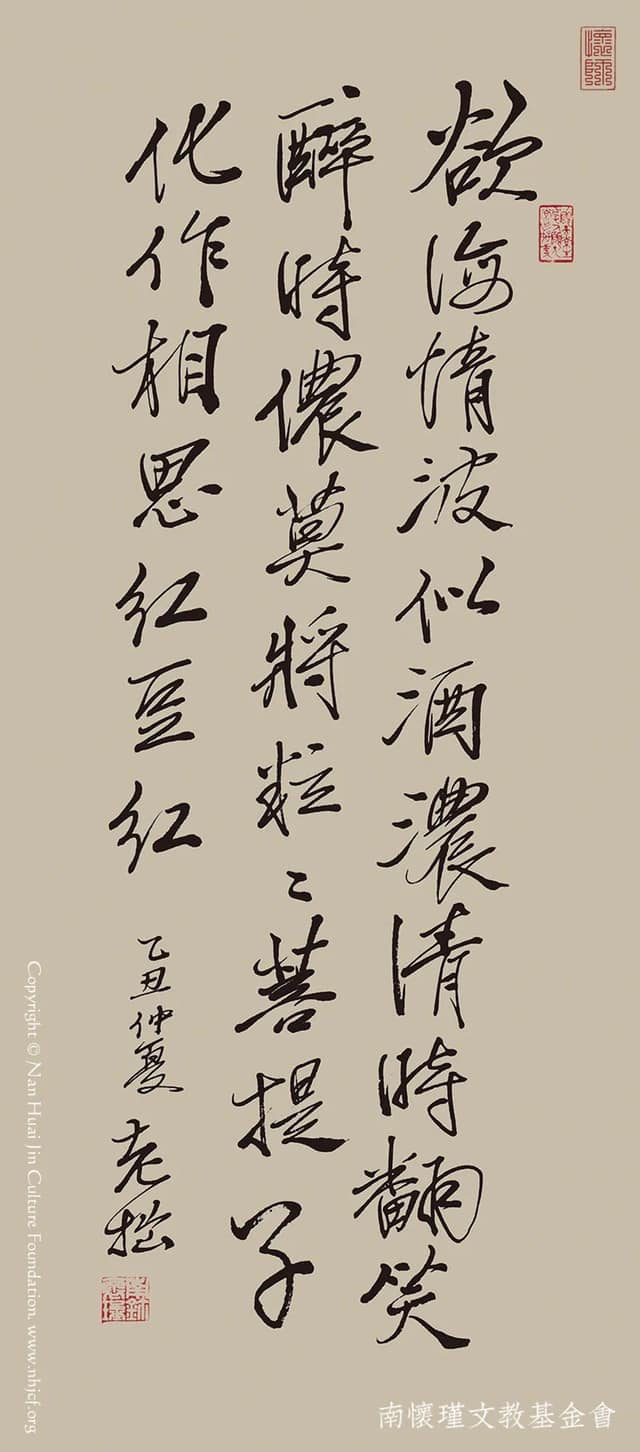 欲海情波似酒濃清時翻笑
醉時儂莫將粒〻菩提子
化作相思紅豆紅
乙丑仲夏
老拙
Copyright © Nan Huai Jin Culture Foundation. www.nhjcf.org
南懷瑾文教基金會